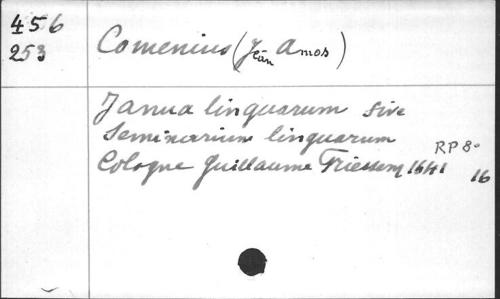 456
253
Comenius (Jean Amos)
Janua linguarum sive
Seminarium linguarum
Cologne Guillaume Friessem 1641
RP 8°
16